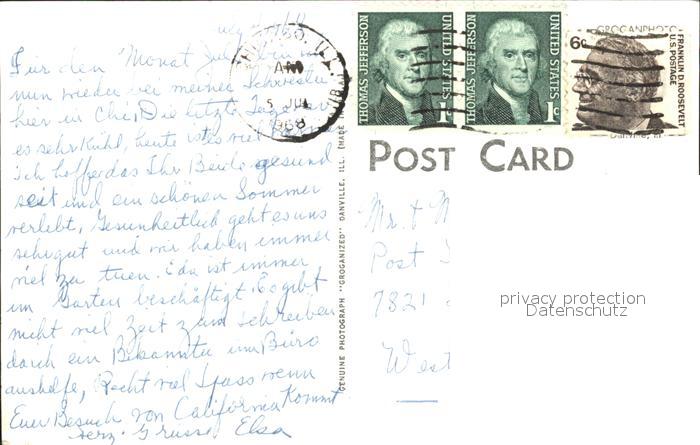 July 4, 68
Für den Monat Juli bin ich
nun wieder bei meiner Schwester
hier in Chic. Die letzte Tage war
es sehr kühl, heute ist es viel
Ich hoffe das Ihr Beide gesund
seit und ein schönen Sommer
verlebt, Gesundheitlich geht es uns
sehr gut und wir haben immer
viel zu tuen. Eda ist immer
im Garten beschäftigt. Es gibt
nicht viel Zeit zum schreiben
doch ein Bekannter im Büro
aushelfe, Recht viel Spass wenn
Euer Besuch von California kommt
Herz. Grüsse Elsa
CHICAGO, ILL.
AM
5 JUL
1968
THOMAS JEFFERSON
1c
UNITED STATES
THOMAS JEFFERSON
1c
UNITED STATES
6c
FRANKLIN D. ROOSEVELT
U.S. POSTAGE
GROGANPHOTO
Danville, Ill
POST CARD
GENUINE PHOTOGRAPH "GROGANIZED" DANVILLE, ILL. (MADE IN
Mr. & M
Post
7821
West
privacy protection
Datenschutz